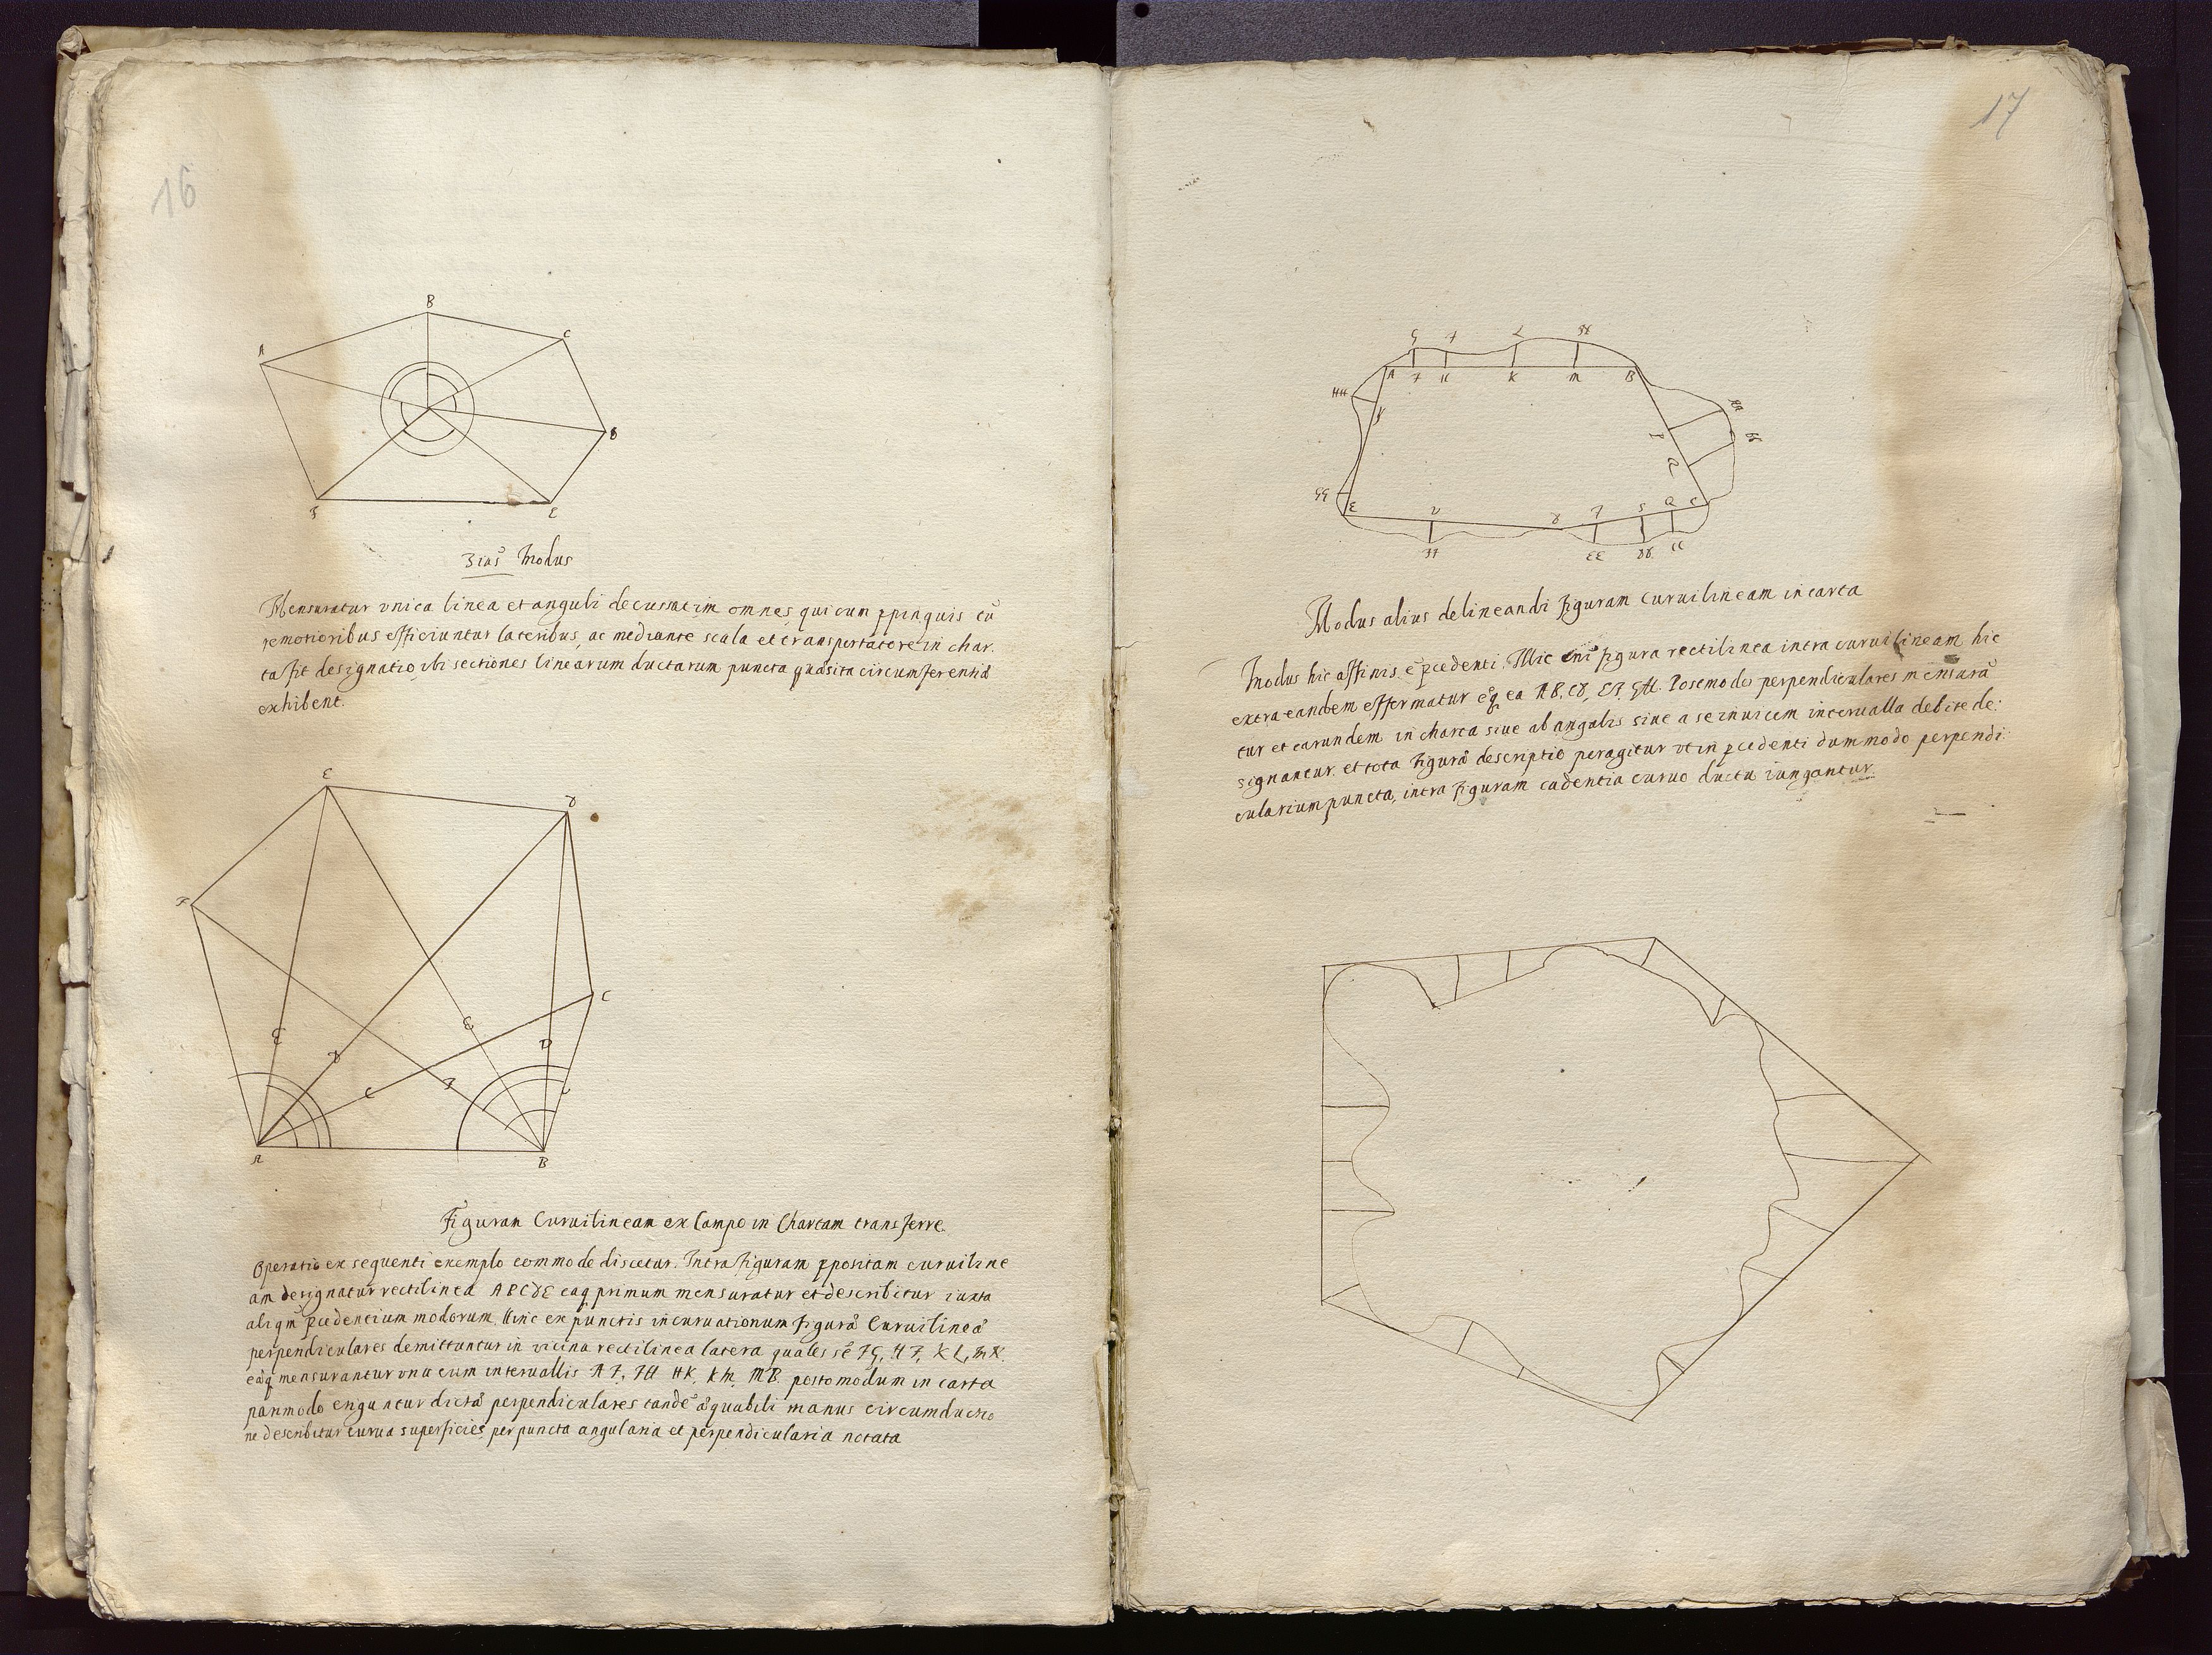 16
B
A
C
D
F
E
3ius Modus
Mensuratur vnica linea et anguli decussatim omnes, qui cum ppinquis cũ
remotioribus efficiuntur lateribus, ac mediante scala et transportatore in char.
ta fit designatio, ibi sectiones linearum ductarum puncta quæsita circumferentiæ
exhibent.
E
D
F
C
E
E
D
D
C
F
C
A
B
Figuram Curuilineam ex Campo in Chartam transferre
Operatio ex sequenti exemplo commode discetur. Intra figuram ppositam curuiline
am designatur rectilinea ABCDE eaq primum mensuratur et describitur iuxta
aliqm pcedentium modorum. Hinc ex punctis incuruationum figuræ Curuilineæ
perpendiculares demittuntur in vicina rectilinea latera quales sẽ FG, HF, KL, MN.
eæq mensurantur vna cum interuallis AF, FH HK, KM, MB. postomodum in carta
pari modo eriguntur dictæ perpendiculares tandẽ æquabili manus circumductio
ne describitur curua superficies per puncta angularia et perpendicularia notata
17
G
L
N
HH
A
F
H
K
M
B
P
Q
GG
E
V
D
S
C
FF
EE
DD
CC
Modus alius delineandi figuram curuilineam in carta
Modus hic affinis ẽ pcedenti. Illic eni figura rectilinea intra curuilineam hic
extra eandem efformatur ẽq ea AB, CD, EF, GH. Posemodo perpendiculares mensurã
tur et earundem in charta siue ab angulis siue a se inuicem interualla debite de:
signantur. et tota figuræ descriptio peragitur vt in pcedenti dummodo perpendi:
cularium puncta, intra figuram cadentia curuo ductu iungantur.